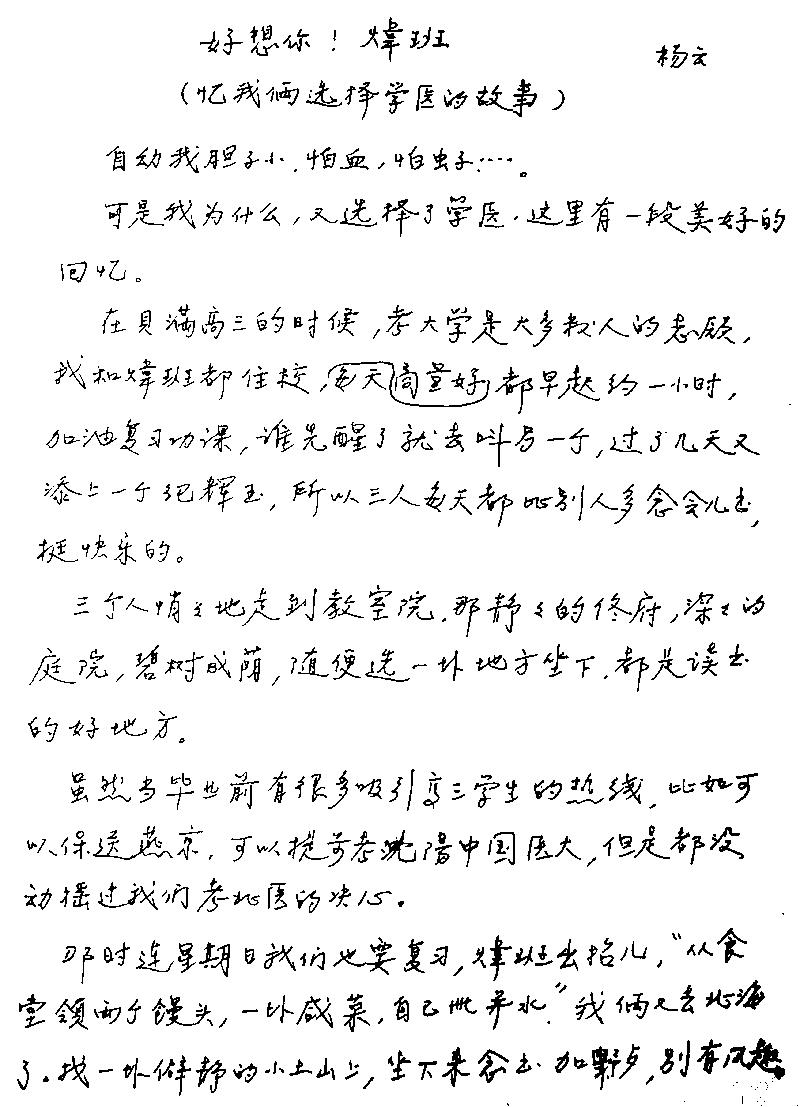 好想你！炜班
杨云
（忆我俩选择学医的故事）
自幼我胆子小，怕血，怕虫子……。
可是我为什么，又选择了学医．这里有一段美好的
回忆。
在贝满高三的时候，考大学是大多数人的志愿，
我和炜班都住校，每天商量好都早起约一小时，
加油复习功课，谁先醒了就去叫另一个，过了几天又
添上一个纪辉玉，所以三人每天都比别人多念会儿书，
挺快乐的。
三个人悄々地走到教室院，那静々的佟府，深々的
庭院，碧树成荫，随便选一块地方坐下，都是读书
的好地方。
虽然当毕业前有很多吸引高三学生的热线，比如可
以保送燕京，可以提前考沈陽中国医大，但是都没
动摇过我们考北医的决心。
那时连星期日我们也要复习，炜班出招儿，“从食
堂领两个馒头，一块咸菜，自己带开水”我俩又去北海
了。找一块僻静的小土山上，坐下来念书 加野台，别有风趣